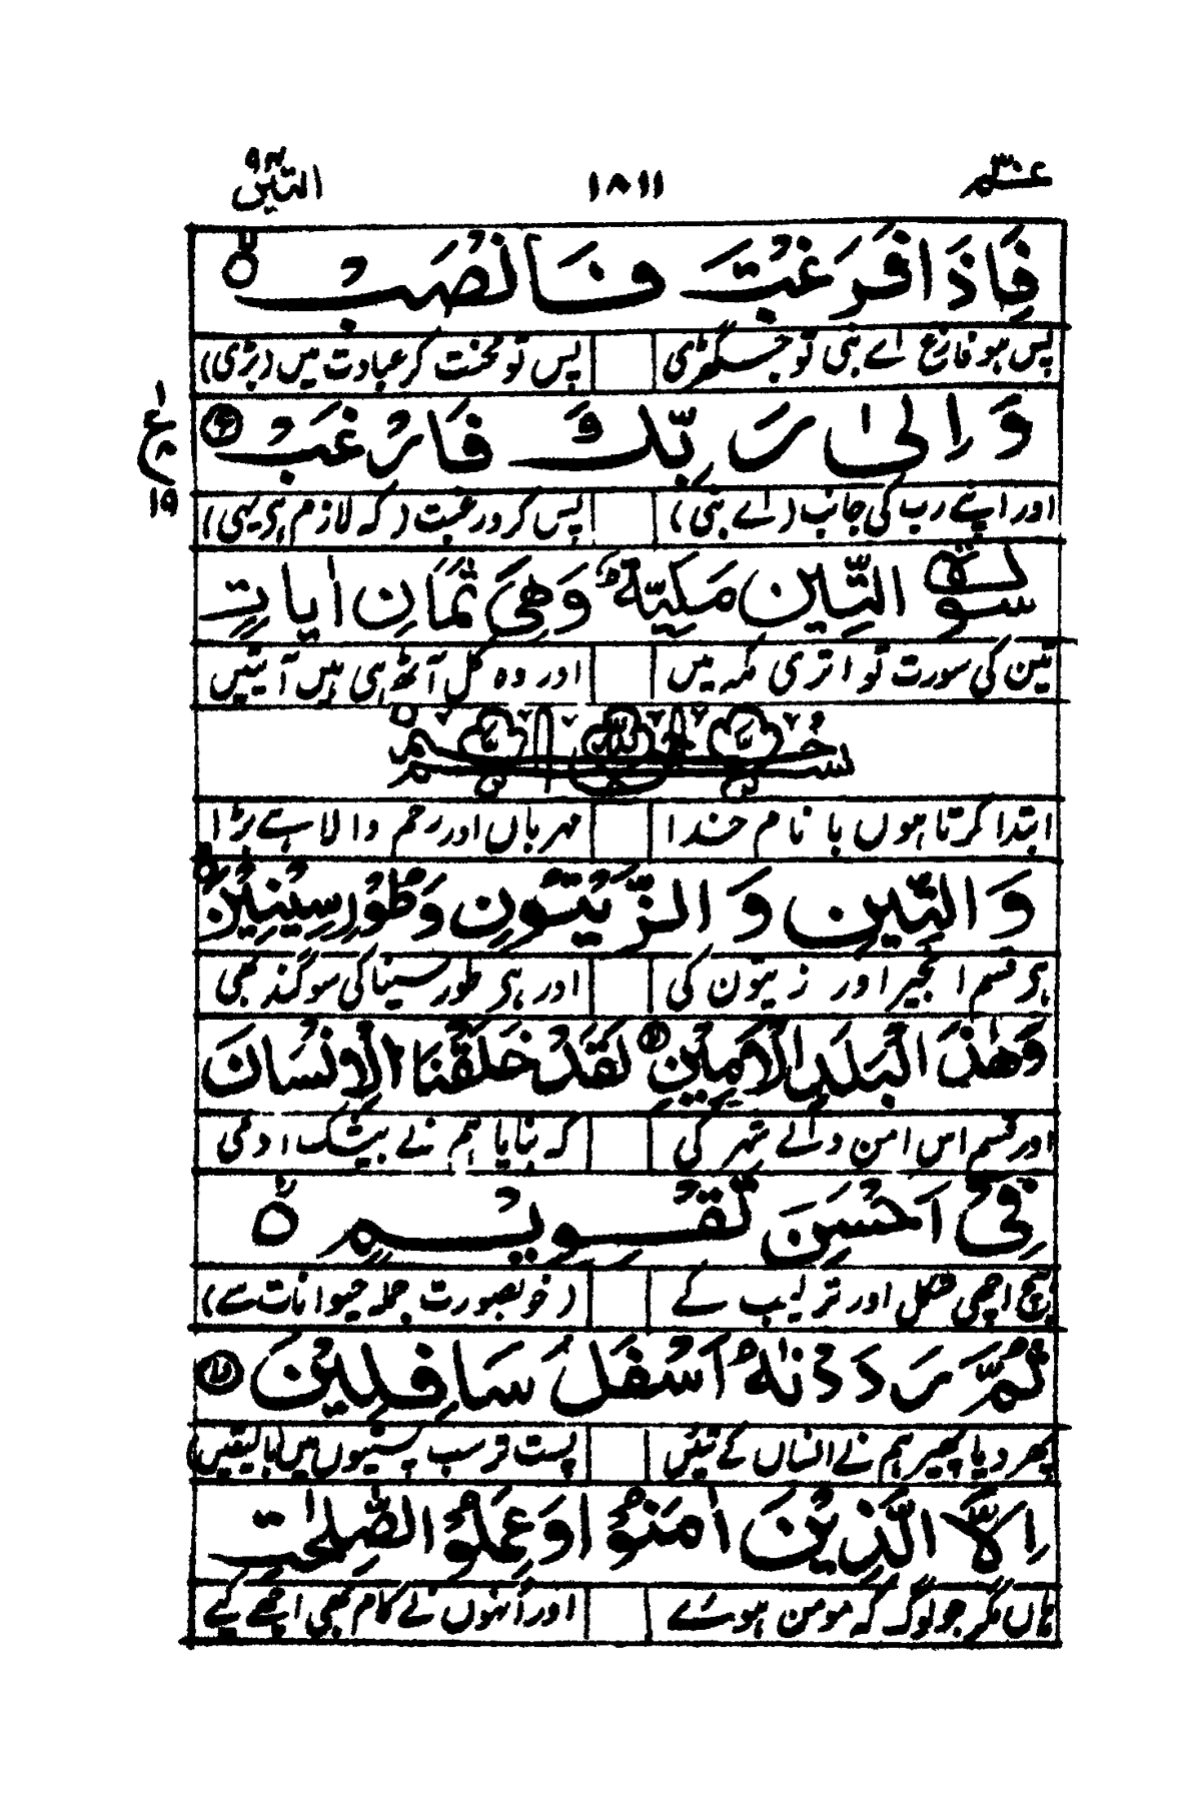 عم ۳۰ ۱۸۱۱ التین ۹۵
فَاِذَا فَرَغْتَ فَانْصَبْ
پس ہو فارغ اے نبی تو جس گھڑی پس تو محنت کر عبادت میں (بڑی)
وَاِلٰی رَبِّكَ فَارْغَبْ
اور اپنے رب کی جانب (اے نبی) پس کرو رغبت (کہ لازم ہے یہی)
ع ۱ ۱۹
سورۃ التِّیْنِ مَکِیَّۃٌ وَهِیَ ثَمَانِ اٰیَاتٍ
تین کی سورت تو اتری مکہ میں اور وہ کل آٹھ ہی ہیں آیتیں
بسم اللہ الرحمن الرحیم
ابتدا کرتا ہوں با نام خدا مہرباں اور رحم والا ہے بڑا
وَالتِّیْنِ وَالزَّیْتُوْنِ وَطُوْرِ سِیْنِیْنَ
ہے قسم انجیر اور زیتون کی اور ہے طور سینا کی سوگند بھی
وَهٰذَا الْبَلَدِ الْاَمِیْنِ لَقَدْ خَلَقْنَا الْاِنْسَانَ
اور قسم اس امن والے شہر کی کہ بنایا ہم نے بیشک ادمی
فِیْ اَحْسَنِ تَقْوِیْمٍ
بیچ اچھی شکل اور ترکیب کے (خوبصورت جملہ حیوانات سے)
ثُمَّ رَدَدْنٰهُ اَسْفَلَ سَافِلِیْنَ
پھر دیا پھیر ہم نے انساں کے تئیں پست تر سب پستیوں میں بالیقیں
اِلَّا الَّذِیْنَ اٰمَنُوْا وَعَمِلُوا الصّٰلِحٰتِ
ہاں مگر جو لوگ کہ مومن ہوئے اور اُنہوں نے کام بھی اچھے کیے